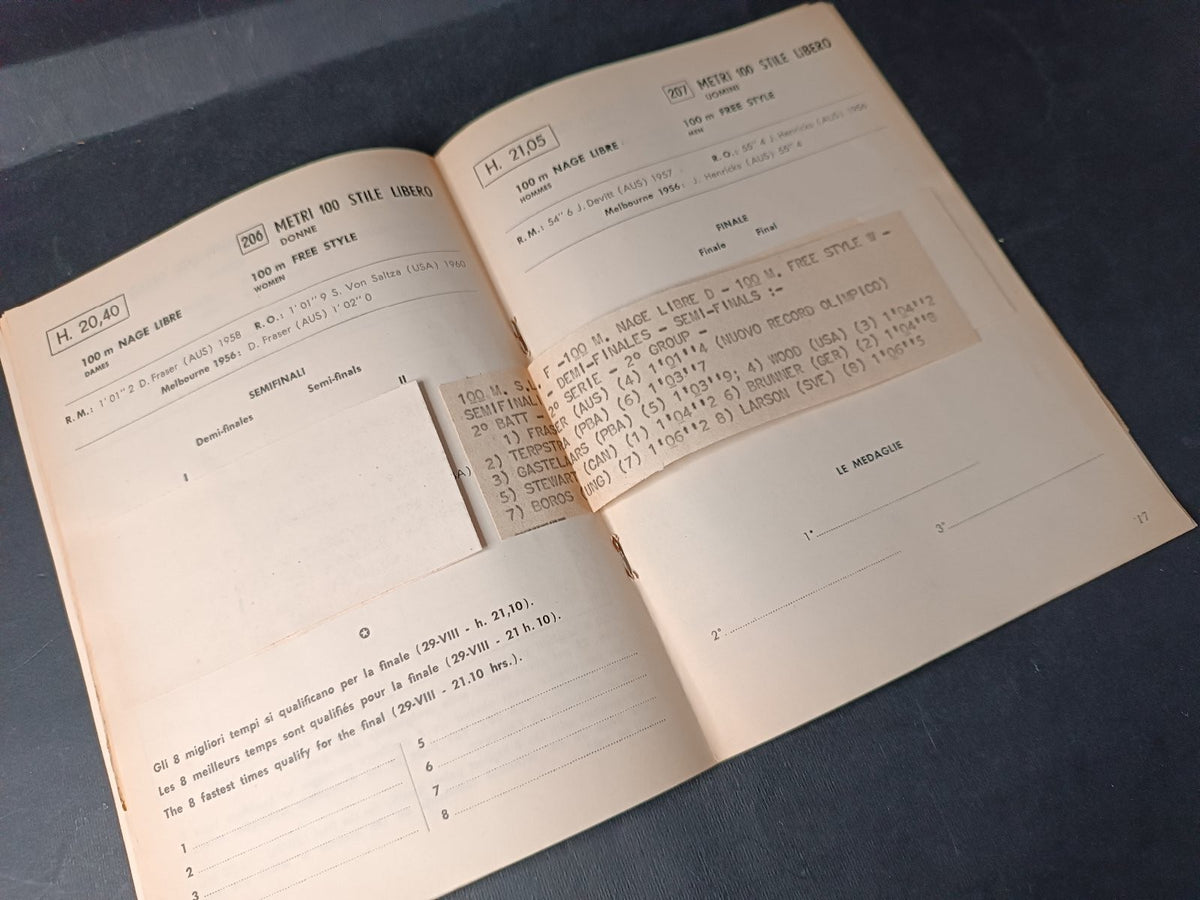 H. 20,40
206 METRI 100 STILE LIBERO
DONNE
100 m NAGE LIBRE
DAMES
100 m FREE STYLE
WOMEN
R. M.: 1' 01'' 2 D. Fraser (AUS) 1958 R. O.: 1' 01'' 9 S. Von Saltza (USA) 1960
Melbourne 1956: D. Fraser (AUS) 1' 02'' 0
SEMIFINALI
Demi-finales Semi-finals
I II
A)
Gli 8 migliori tempi si qualificano per la finale (29-VIII - h. 21,10).
Les 8 meilleurs temps sont qualifiés pour la finale (29-VIII - 21 h. 10).
The 8 fastest times qualify for the final (29-VIII - 21.10 hrs.).
1
2
3
5
6
7
8
H. 21,05
207 METRI 100 STILE LIBERO
UOMINI
100 m NAGE LIBRE
HOMMES
100 m FREE STYLE
MEN
R. M.: 54'' 6 J. Devitt (AUS) 1957 R. O.: 55'' 4 J. Henricks (AUS) 1956
Melbourne 1956: J. Henricks (AUS) 55'' 4
FINALE
Finale Final
100 M. S.L. F -100 M. NAGE LIBRE D - 100 M. FREE STYLE W -
SEMIFINALI - DEMI-FINALES - SEMI-FINALS :-
2° BATT - 2° SERIE - 2° GROUP -
1) FRASER (AUS) (4) 1'01''4 (NUOVO RECORD OLIMPICO)
2) TERPSTRA (PBA) (6) 1'03''7
3) GASTELAARS (PBA) (5) 1'03''9; 4) WOOD (USA) (3) 1'04''2
5) STEWART (CAN) (1) 1'04''2 6) BRUNNER (GER) (2) 1'04''8
7) BOROS (UNG) (7) 1'06''2 8) LARSON (SVE) (8) 1'06''5
LE MEDAGLIE
1°
2°
3°
17